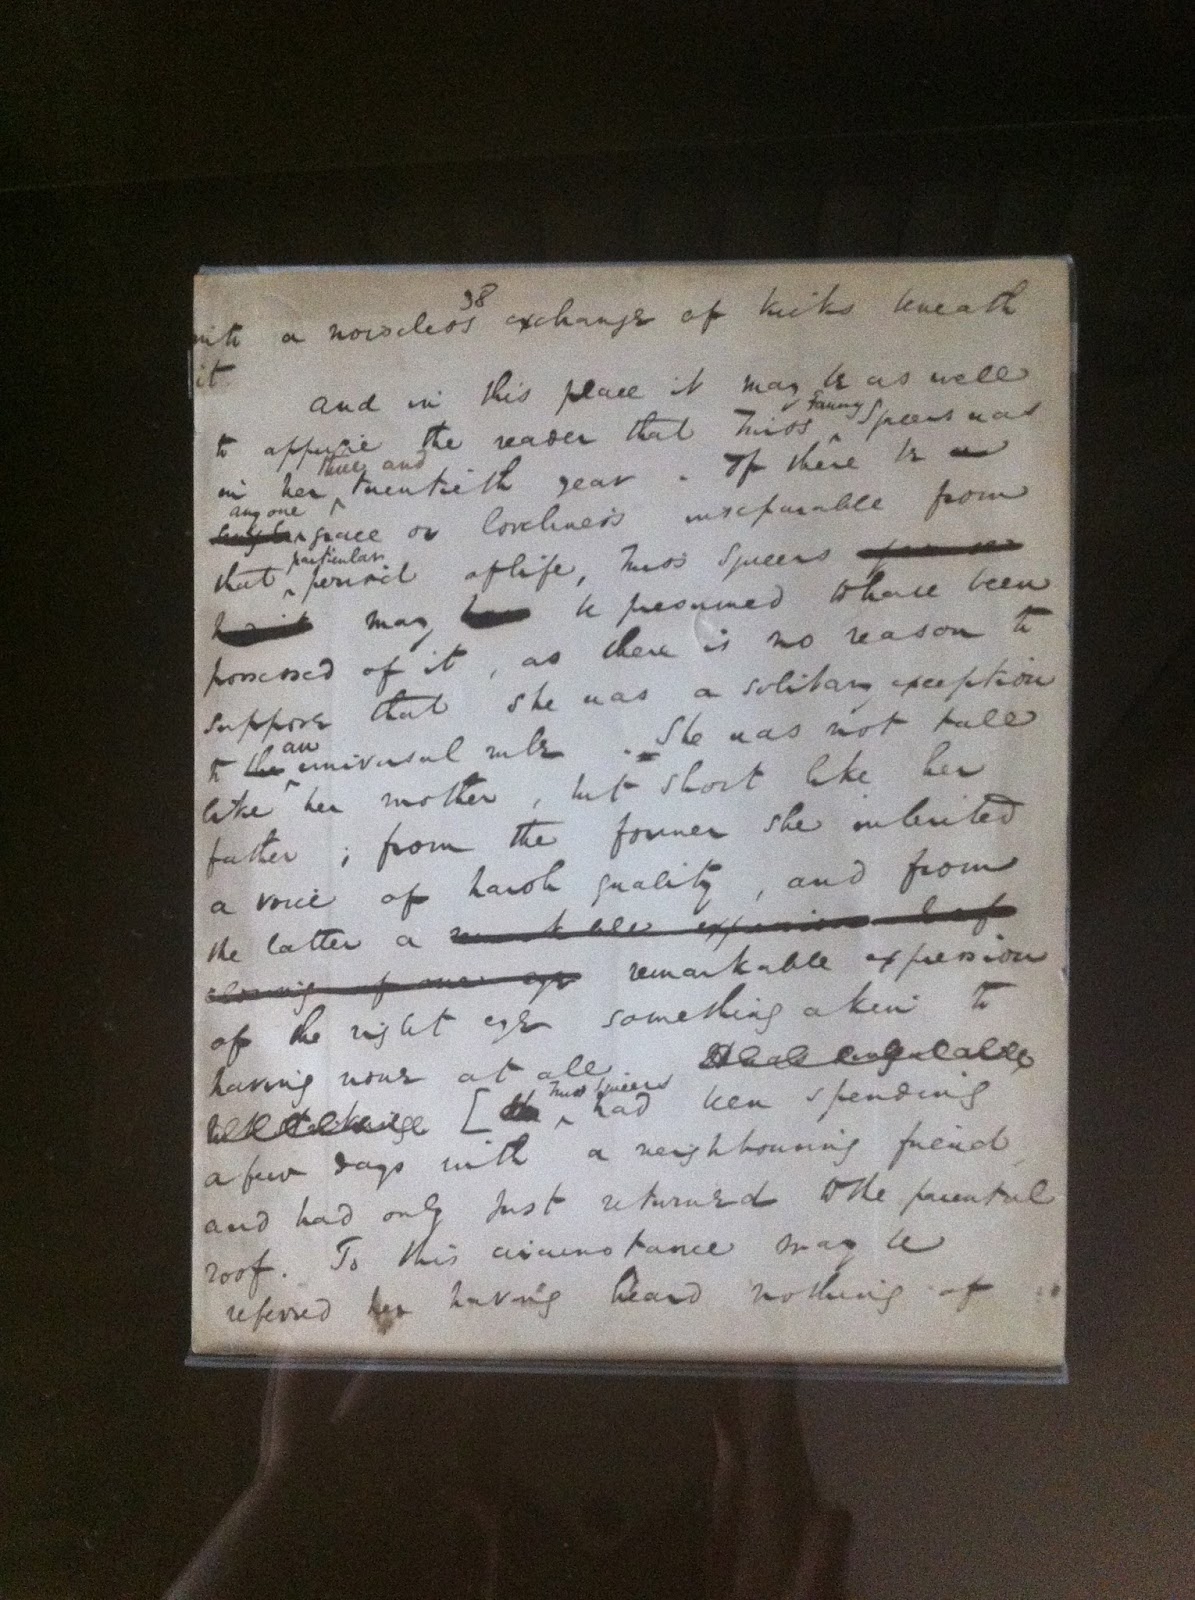 38
with a noiseless exchange of kicks beneath
it
and in this place it may be as well
to apprize the reader that Miss Fanny Squeers was
in her three and twentieth year. If there be a
any one grace or loveliness inseparable from
that particular period of life, Miss Squeers
may be presumed to have been
possessed of it, as there is no reason to
suppose that she was a solitary exception
to the an universal rule. She was not tall
like her mother, but short like her
father; from the former she inherited
a voice of harsh quality, and from
the latter a remarkable expression half
closing of one eye remarkable expression
of the right eye something akin to
having none at all.
[ Miss Squeers had been spending
a few days with a neighbouring friend,
and had only just returned to the parental
roof. To this circumstance may be
referred her having heard nothing of